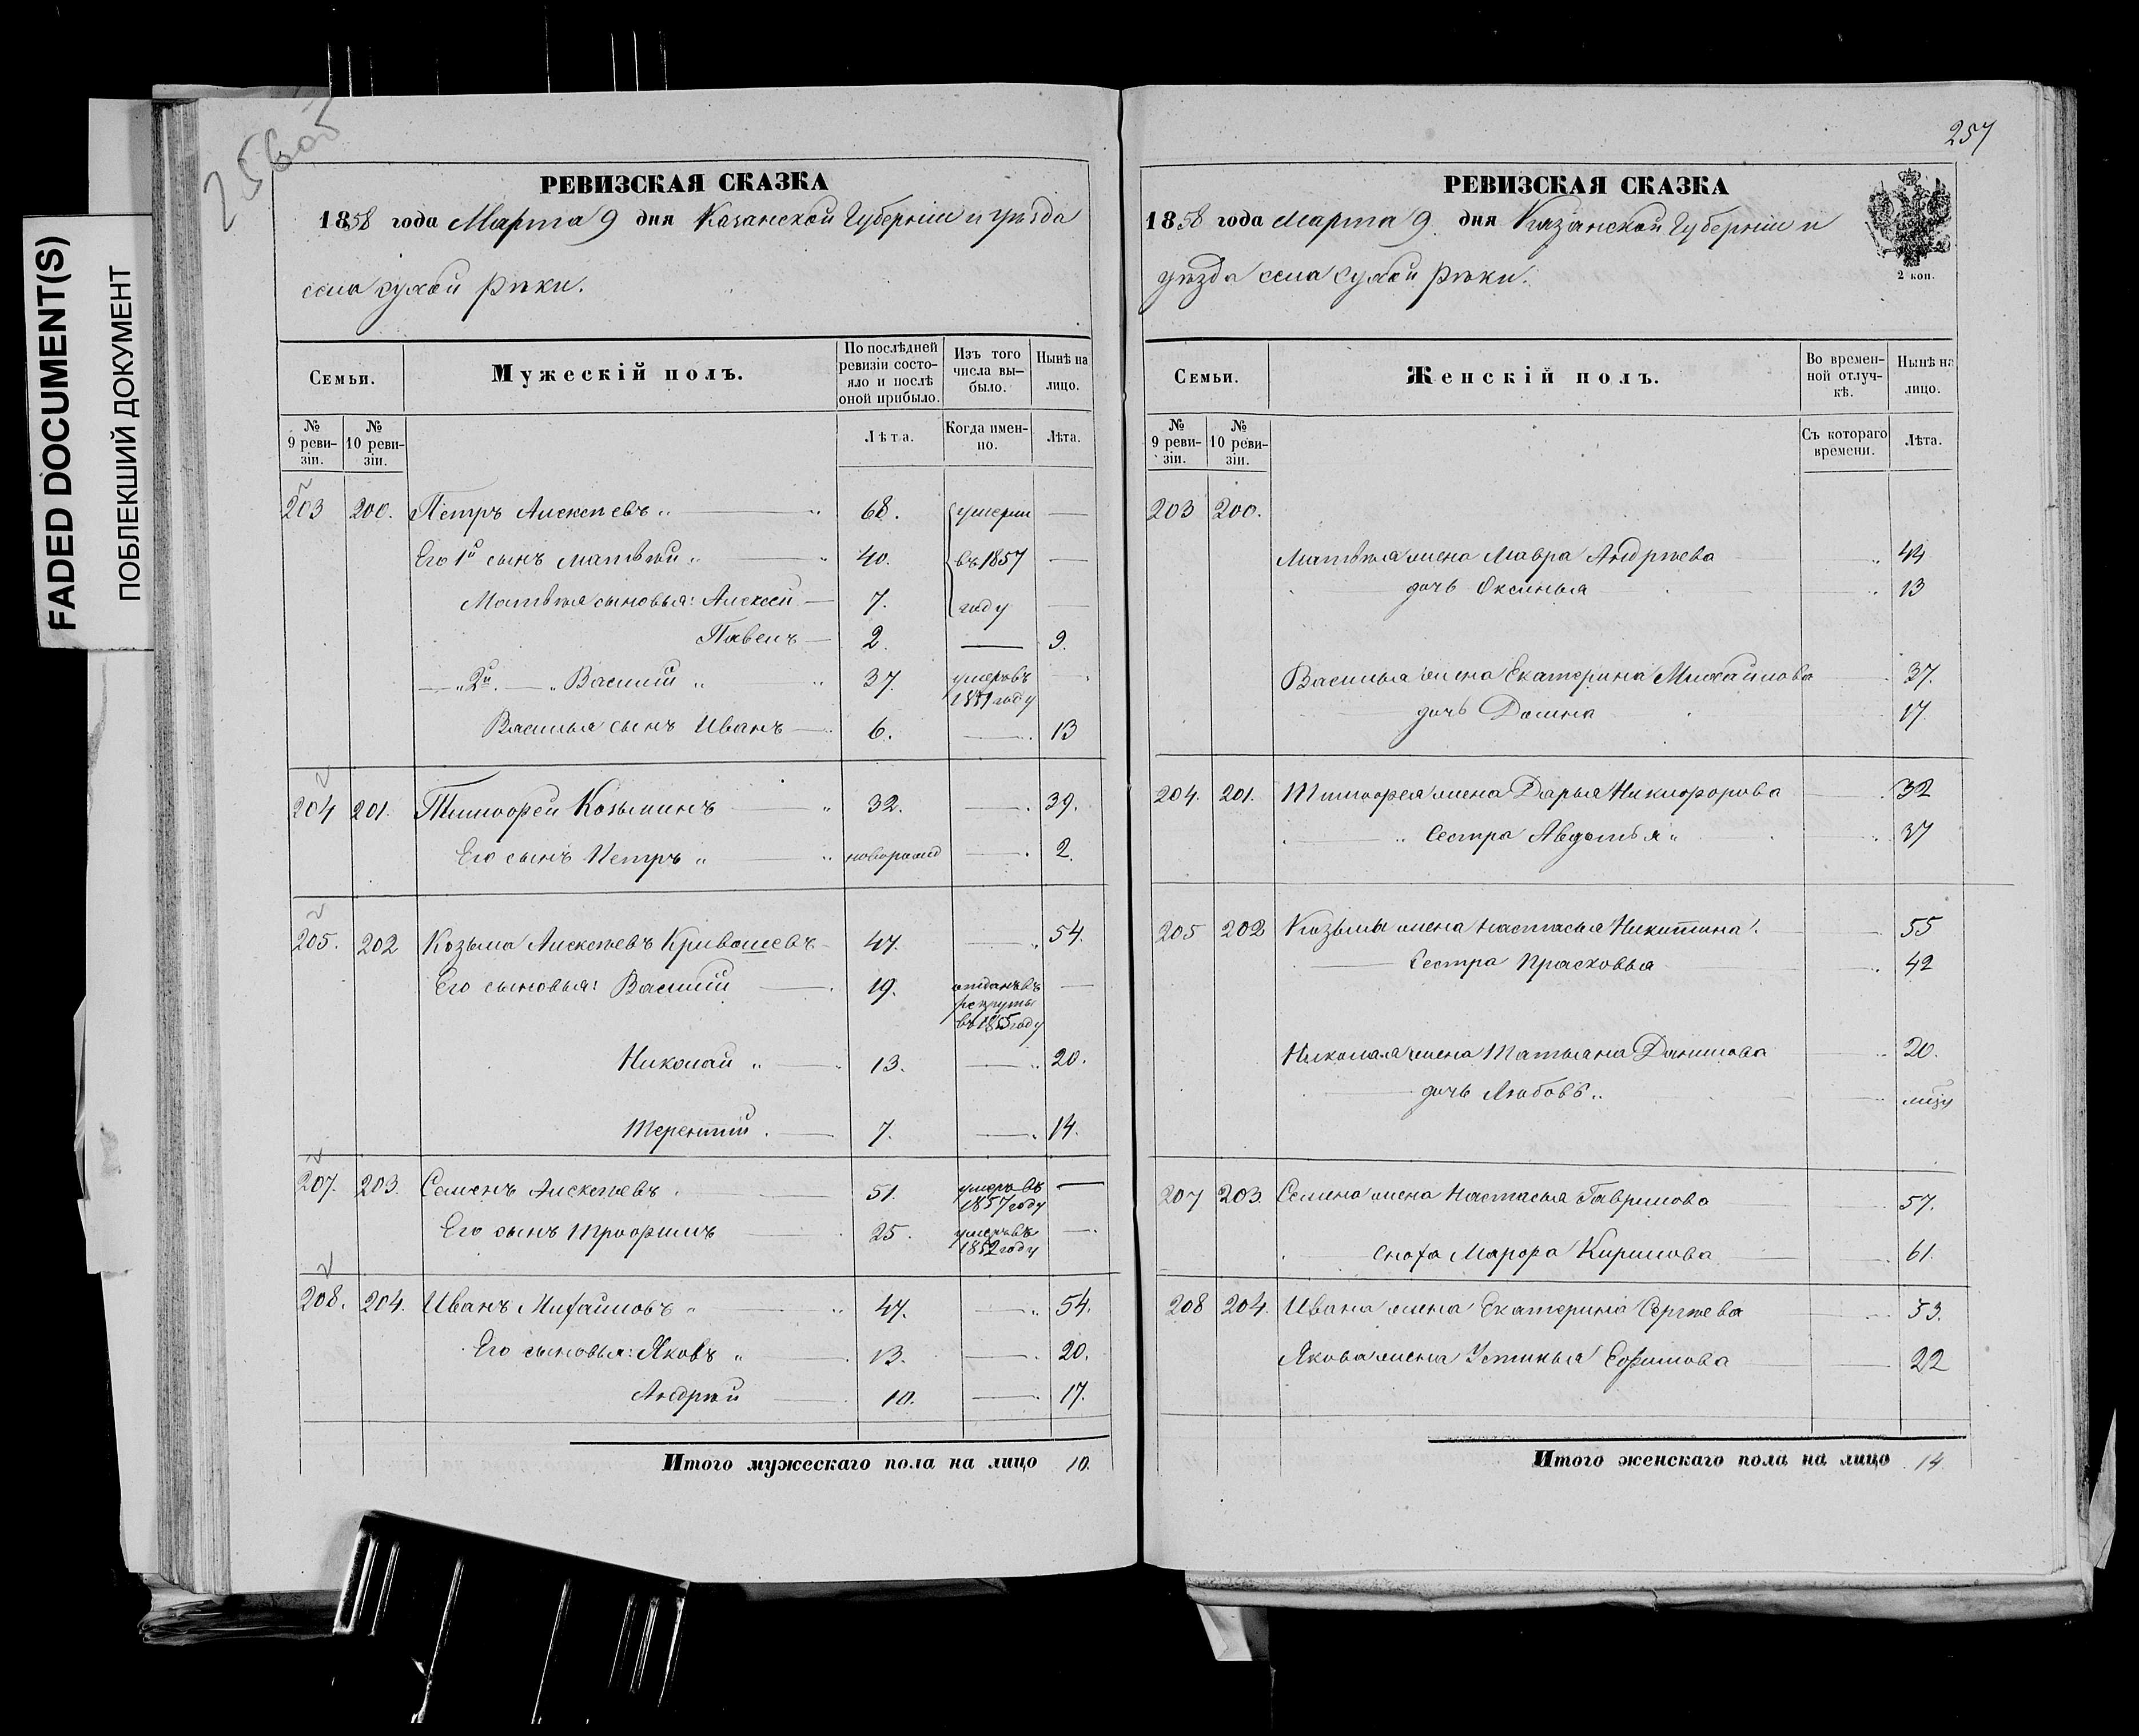 FADED DOCUMENT(S)
ПОБЛЕКШИЙ ДОКУМЕНТ
256об
РЕВИЗСКАЯ СКАЗКА
1858 года Марта 9 дня Казанской Губерніи и уѣзда
села сухой рѣки.
Семьи.
Мужескій полъ.
По послѣдней ревизіи состояло и послѣ оной прибыло.
Изъ того числа выбыло.
Нынѣ на лицо.
№ 9 ревизіи.
№ 10 ревизіи.
Лѣта.
Когда именно.
Лѣта.
203 200. Петръ Алексѣевъ „ 68. умерли —
Его 1й сынъ Матвѣй „ 40. въ 1857 —
Матвѣя сыновья: Алексей — 7. году —
Павелъ — 2. — 9.
— „ 2й. — „ Василій „ 37. умеръ въ 1851 году —
Василья сынъ Иванъ — 6. — 13
204 201. Тимофей Козьминъ — „ 32. — 39.
Его сынъ Петръ „ — „ новорожд — 2.
205. 202 Козьма Алексѣевъ Кривошеевъ 47. — 54.
Его сыновья: Василій — 19. отданъ въ рекруты въ 1855 году —
Николай „ — 13. — 20.
Терентій — 7. — 14.
207. 203. Семенъ Алексѣевъ 51. умеръ въ 1857 году —
Его сынъ Трофимъ — 25. умеръ въ 1852 году —
208. 204. Иванъ Михайловъ „ 47. — 54.
Его сыновья: Яковъ „ 13. — 20.
Андрей — 10. — 17.
Итого мужескаго пола на лицо 10.
257
РЕВИЗСКАЯ СКАЗКА
1858 года Марта 9 дня Казанской Губерніи и
уѣзда села Сухой рѣки.
2 коп.
Семьи.
Женскій полъ.
Во временной отлучкѣ.
Нынѣ на лицо.
№ 9 ревизіи.
№ 10 ревизіи.
Съ котораго времени.
Лѣта.
203 200.
Матвѣя жена Мавра Андрѣева 44
дочь Оксинья 13
Василья жена Екатерина Михайлова 37.
дочь 17
204. 201. Тимофея жена Дарья Никифорова 32
— „ Сестра Авдотья „ 37
205 202 Козьмы жена Настасья Никитина 55
— Сестра Прасковья 42
Николая жена Татьяна Данилова 20.
— дочь Любовь „
207 203. Семена жена Настасья Гаврилова 57.
— сноха Марфа Кирилова 61.
208 204. Ивана жена Екатерина Сергѣева 53.
Якова жена Устинья Ефимова 22
Итого женскаго пола на лицо 14